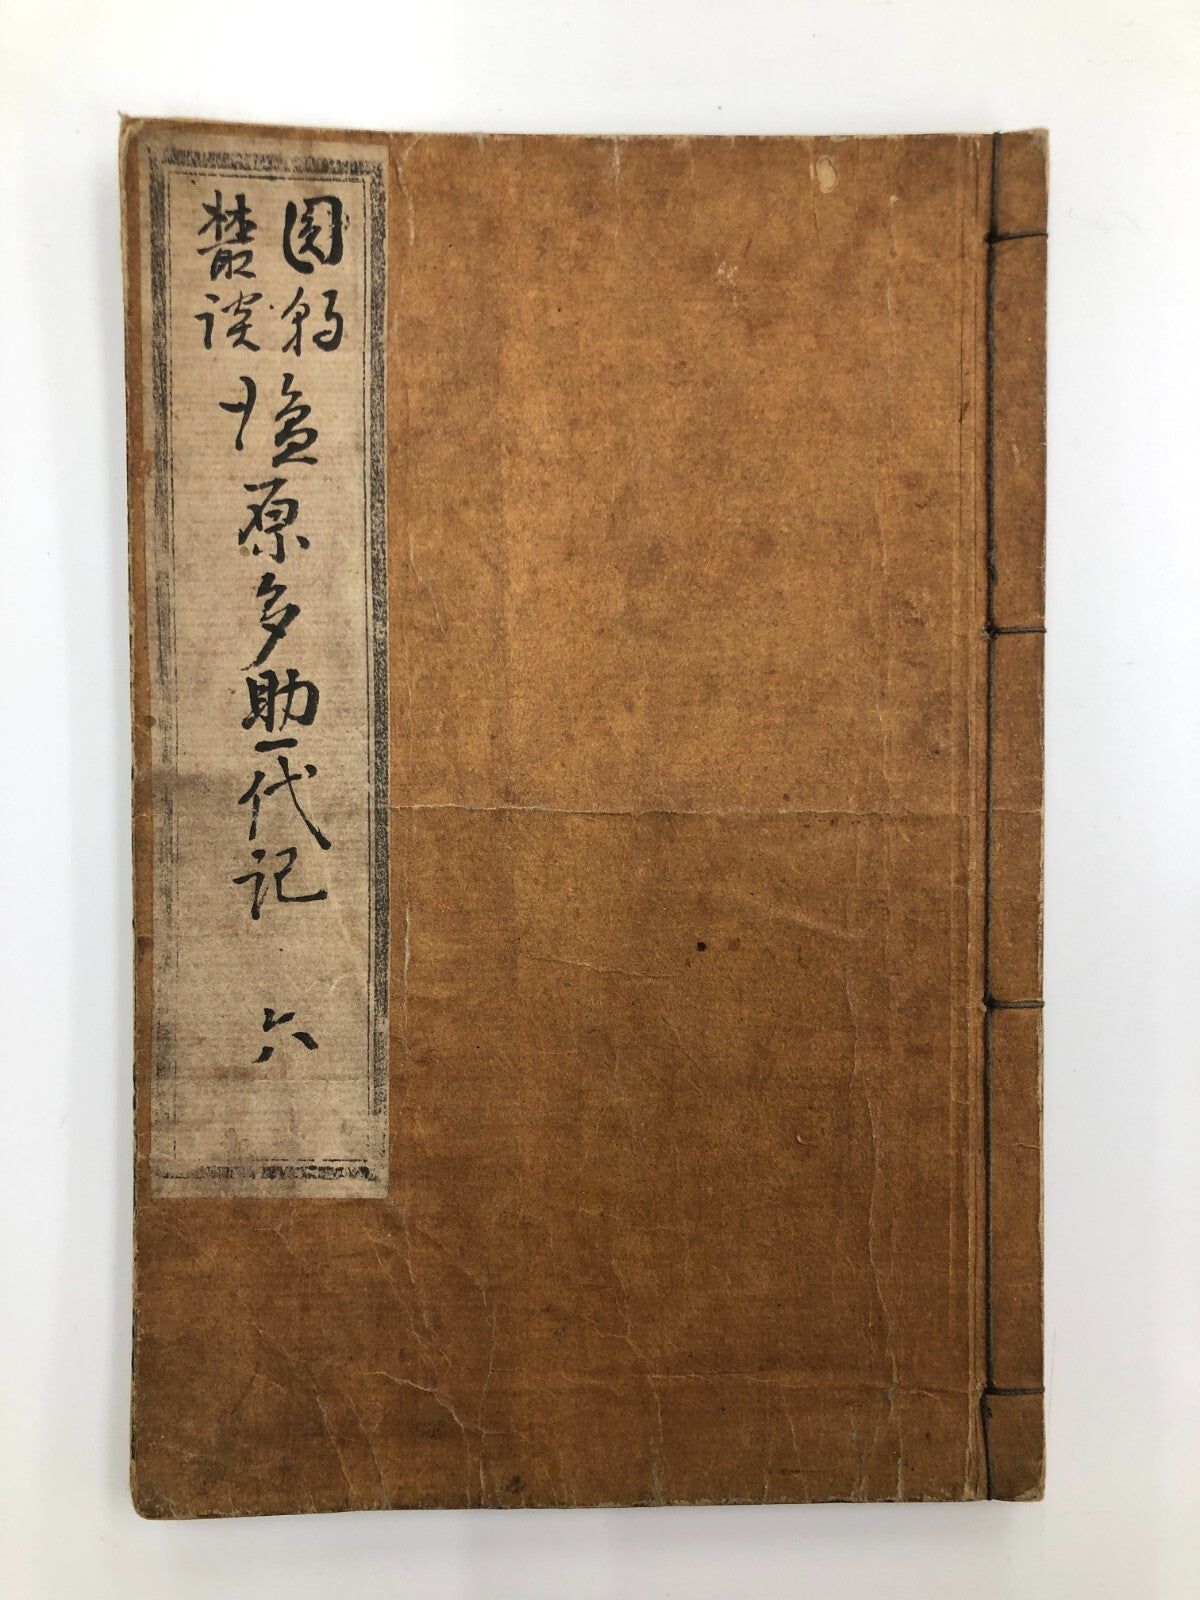 圓朝
叢談
塩原多助一代記 六